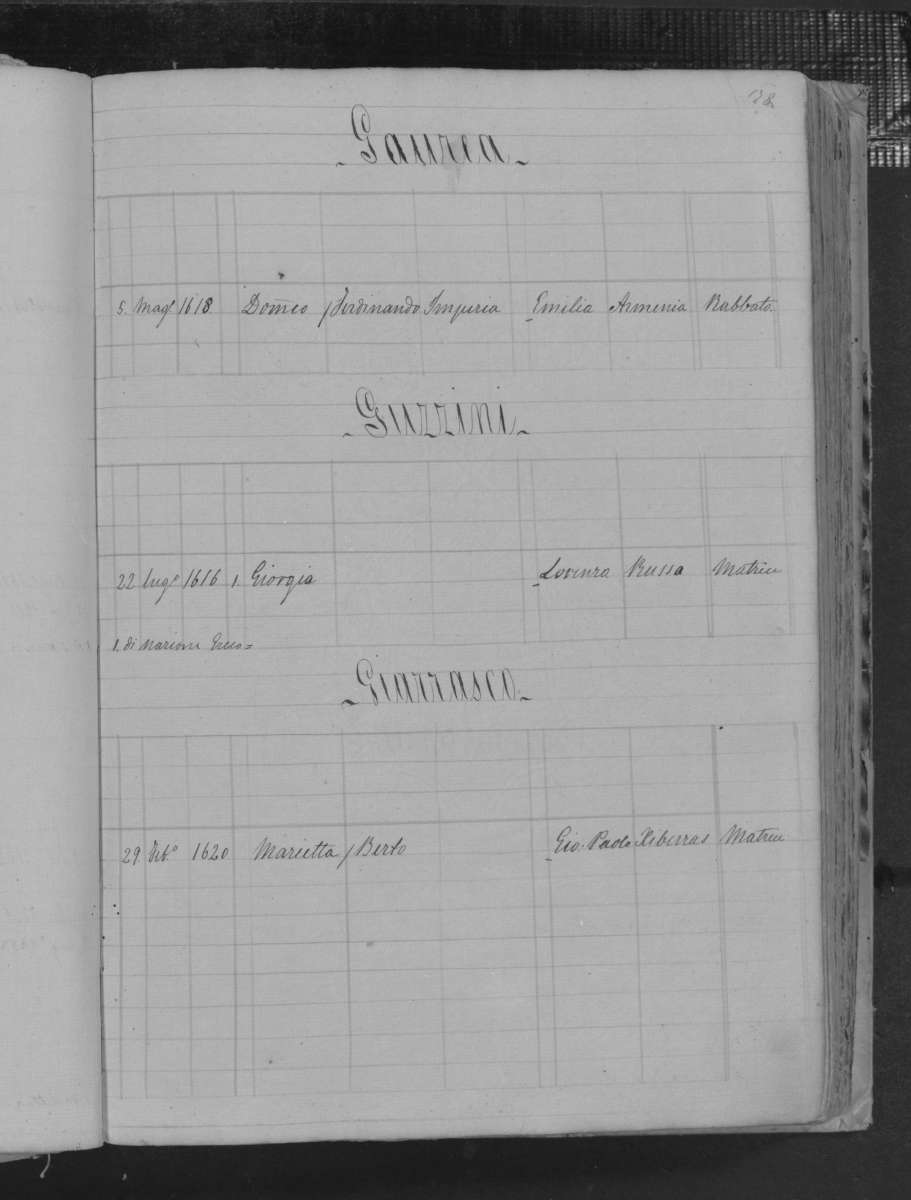 38
Gaurea
5. Magº 1618. Domco / Ferdinando Imperia Emilia Armenia Rabbato.
Guzzini
22 Lugº 1616 1. Giorgia Lorenza Russa Matrice
1. di Nazione Greca =
Giarrasco
29. 1620 Marietta / Berto Gio. Paolo Xiberras Matrice